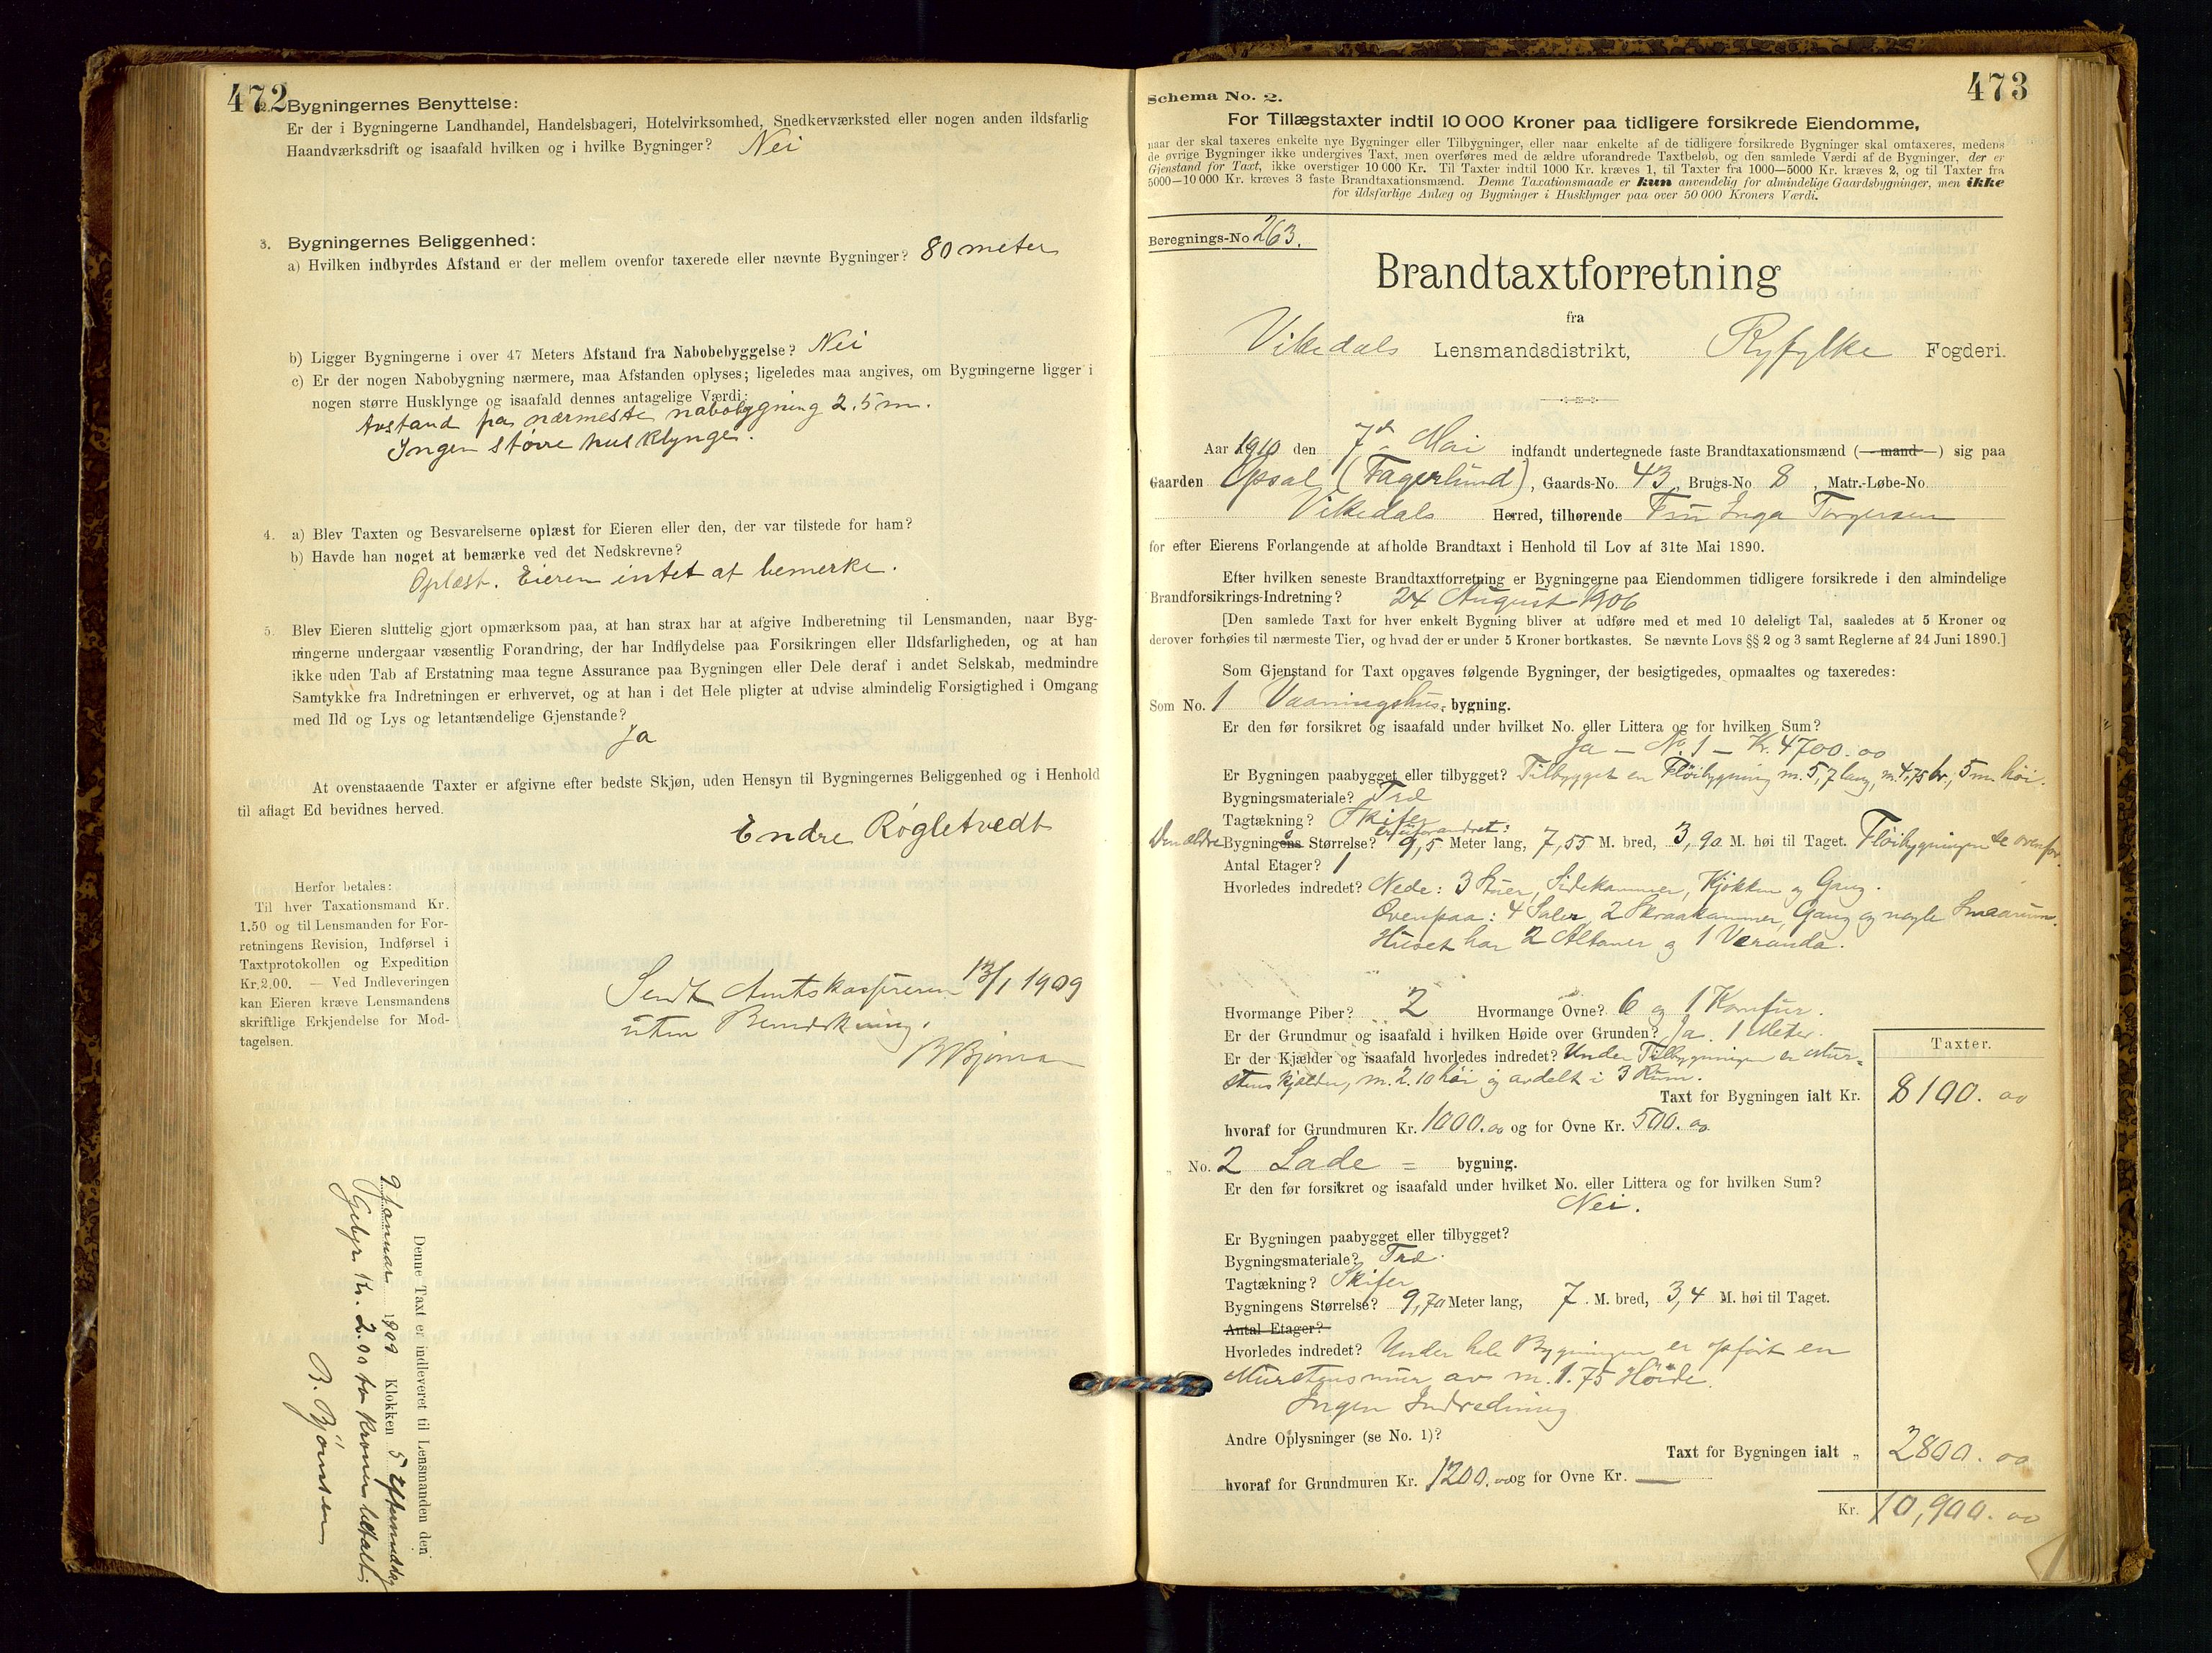 472
2. Bygningernes Benyttelse:
Er der i Bygningerne Landhandel, Handelsbageri, Hotelvirksomhed, Snedkerværksted eller nogen anden ildsfarlig
Haandværksdrift og isaafald hvilken og i hvilke Bygninger? Nei
3. Bygningernes Beliggenhed:
a) Hvilken indbyrdes Afstand er der mellem ovenfor taxerede eller nævnte Bygninger? 80 meter
b) Ligger Bygningerne i over 47 Meters Afstand fra Nabobebyggelse? Nei
c) Er der nogen Nabobygning nærmere, maa Afstanden oplyses; ligeledes maa angives, om Bygningerne ligger i
nogen større Husklynge og isaafald dennes antagelige Værdi:
Avstand paa nærmeste nabobygning 2.5 m.
Ingen större husklynge.
4. a) Blev Taxten og Besvarelserne oplæst for Eieren eller den, der var tilstede for ham?
b) Havde han noget at bemærke ved det Nedskrevne?
Oplæst. Eieren intet at bemerke.
5. Blev Eieren sluttelig gjort opmærksom paa, at han strax har at afgive Indberetning til Lensmanden, naar Byg-
ningerne undergaar væsentlig Forandring, der har Indflydelse paa Forsikringen eller Ildsfarligheden, og at han
ikke uden Tab af Erstatning maa tegne Assurance paa Bygningen eller Dele deraf i andet Selskab, medmindre
Samtykke fra Indretningen er erhvervet, og at han i det Hele pligter at udvise almindelig Forsigtighed i Omgang
med Ild og Lys og letantændelige Gjenstande?
Ja
At ovenstaaende Taxter er afgivne efter bedste Skjøn, uden Hensyn til Bygningernes Beliggenhed og i Henhold
til aflagt Ed bevidnes herved.
Endre Rögletvedt
Herfor betales:
Til hver Taxationsmand Kr.
1.50 og til Lensmanden for For-
retningens Revision, Indførsel i
Taxtprotokollen og Expedition
Kr. 2.00. — Ved Indleveringen
kan Eieren kræve Lensmandens
skriftlige Erkjendelse for Mod-
tagelsen.
Sendt Amtskassereren 13/1 1909
uten Bemerkning.
B Bjönsen
Denne Taxt er indleveret til Lensmanden den
9 januar 1909 Klokken 5 Eftermiddag
Gebyr Kr. 2.00 to Kroner betalt.
B. Bjönsen
473
Schema No. 2.
For Tillægstaxter indtil 10 000 Kroner paa tidligere forsikrede Eiendomme,
naar der skal taxeres enkelte nye Bygninger eller Tilbygninger, eller naar enkelte af de tidligere forsikrede Bygninger skal omtaxeres, medens
de øvrige Bygninger ikke undergives Taxt, men overføres med de ældre uforandrede Taxtbeløb, og den samlede Værdi af de Bygninger, der er
Gjenstand for Taxt, ikke overstiger 10 000 Kr. Til Taxter indtil 1000 Kr. kræves 1, til Taxter fra 1000—5000 Kr. kræves 2, og til Taxter fra
5000—10 000 Kr. kræves 3 faste Brandtaxationsmænd. Denne Taxationsmaade er kun anvendelig for almindelige Gaardsbygninger, men ikke
for ildsfarlige Anlæg og Bygninger i Husklynger paa over 50 000 Kroners Værdi.
Beregnings-No 263.
Brandtaxtforretning
fra
Vikedals Lensmandsdistrikt, Ryfylke Fogderi.
Aar 1910 den 7d Mai indfandt undertegnede faste Brandtaxationsmænd (—mand—) sig paa
Gaarden Opsal (Fagerlund), Gaards-No. 43, Brugs-No 8, Matr.-Løbe-No.
Vikedals Herred, tilhørende Fru Inga Torgersen
for efter Eierens Forlangende at afholde Brandtaxt i Henhold til Lov af 31te Mai 1890.
Efter hvilken seneste Brandtaxtforretning er Bygningerne paa Eiendommen tidligere forsikrede i den almindelige
Brandforsikrings-Indretning? 24 August 1906
[Den samlede Taxt for hver enkelt Bygning bliver at udføre med et med 10 deleligt Tal, saaledes at 5 Kroner og
derover forhøies til nærmeste Tier, og hvad der er under 5 Kroner bortkastes. Se nævnte Lovs §§ 2 og 3 samt Reglerne af 24 Juni 1890.]
Som Gjenstand for Taxt opgaves følgende Bygninger, der besigtigedes, opmaaltes og taxeredes:
Som No. 1 Vaaningshus- bygning.
Er den før forsikret og isaafald under hvilket No. eller Littera og for hvilken Sum?
Ja — No. 1 — Kr. 4700.00
Er Bygningen paabygget eller tilbygget? Tilbygget en Flöibygning m. 5,7 lang, m. 4,75 br., 5 m. höi.
Bygningsmateriale? Træ
Tagtækning? Skifer
er uforandret:
Den ældre Bygningens Størrelse? 9,5 Meter lang, 7,55 M. bred, 3,90 M. høi til Taget. Flöibygningen se ovenfor.
Antal Etager? 1
Hvorledes indredet? Nede: 3 Stuer, Sidekammer, Kjökken og Gang.
Ovenpaa: 4 Saler, 2 Skraakammer, Gang og nogle Smaarum.
Huset har 2 Altaner og 1 Veranda.
Hvormange Piber? 2 Hvormange Ovne? 6 og 1 Komfur.
Er der Grundmur og isaafald i hvilken Høide over Grunden? Ja. 1 Meter.
Er der Kjælder og isaafald hvorledes indredet? Under Tilbygningen er mur-
stens kjælder, m. 2.10 höi og avdelt i 3 Rum.
Taxter.
Taxt for Bygningen ialt Kr. 8100.00
hvoraf for Grundmuren Kr. 1000.00 og for Ovne Kr. 500.00
„ No. 2 Lade = bygning.
Er den før forsikret og isaafald under hvilket No. eller Littera og for hvilken Sum?
Nei.
Er Bygningen paabygget eller tilbygget?
Bygningsmateriale? Træ.
Tagtækning? Skifer
Bygningens Størrelse? 9,70 Meter lang, 7. M. bred, 3,4 M. høi til Taget.
Antal Etager?
Hvorledes indredet? Under hele Bygningen er opfört en
Murstensmur av m. 1.75 Höide.
Ingen Indredning
Andre Oplysninger (se No. 1)?
Taxt for Bygningen ialt „ 2800.00
hvoraf for Grundmuren Kr. 1200.00 og for Ovne Kr. —
Kr. 10,900.00